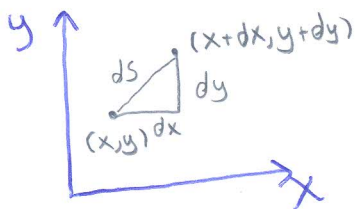 y
(x+dx, y+dy)
ds
dy
(x,y)
dx
x